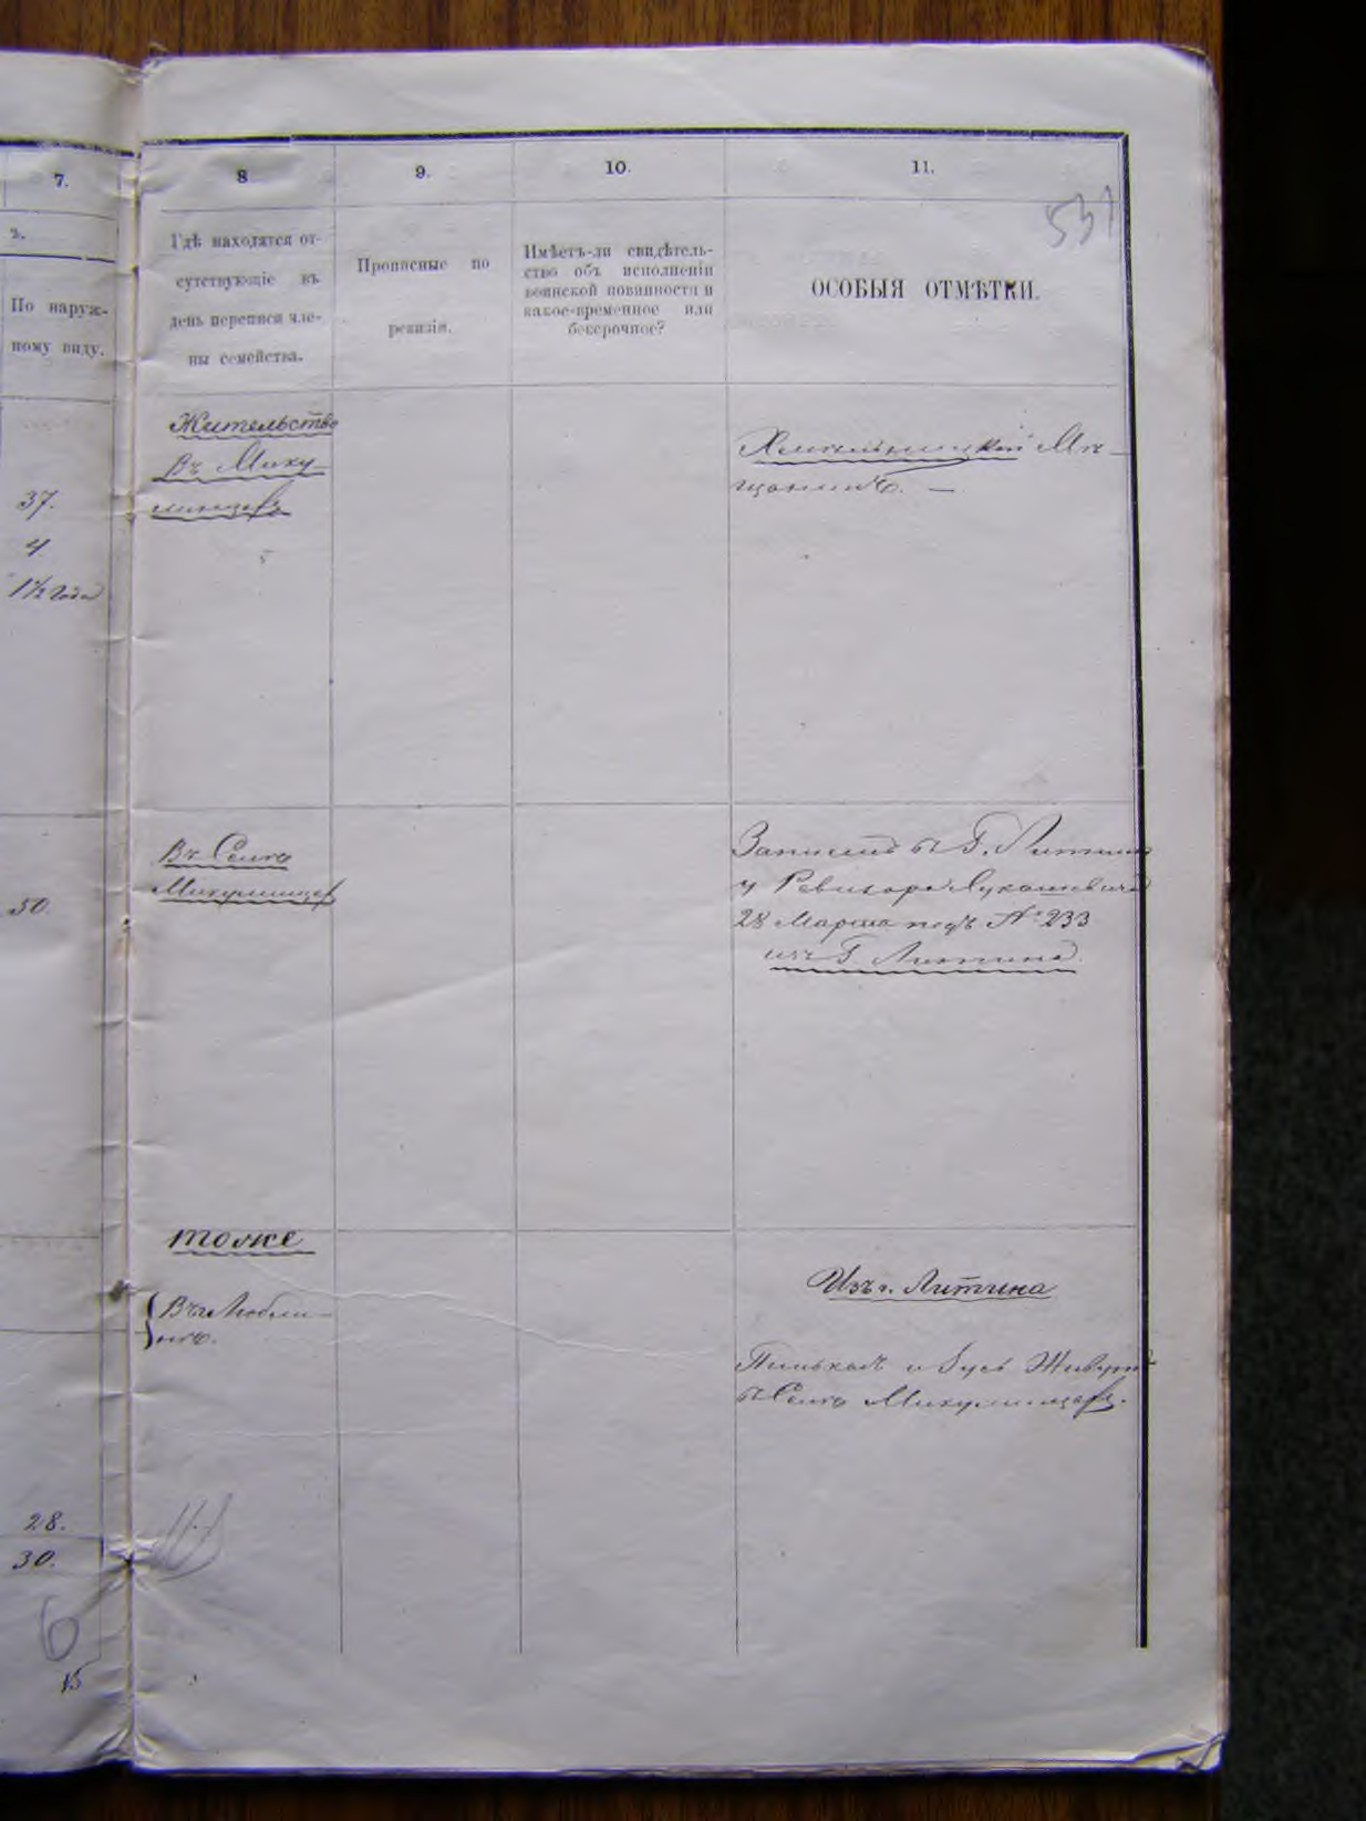 7.
8
9.
10.
11.
531
ъ.
По наруж-
ному виду.
Гдѣ находятся от-
сутствующіе въ
день переписи чле-
ны семейства.
Прописные по
ревизіи.
Имѣетъ-ли свидѣтель-
ство объ исполненіи
воинской повинности и
какое-временное или
безсрочное?
ОСОБЫЯ ОТМѢТКИ.
37.
4
1½ года
Жительство
Въ Мику-
линцахъ
Хмельницкій Мѣ-
щанинъ. —
50.
Въ Селѣ
Микулинцахъ
Записанъ въ Г. Литинѣ
у Ревизора Лукашевича
28 Марта подъ № 233
изъ Г. Литина.
тоже
Въ
Изъ г. Литина
и Живутъ
въ Селѣ Микулинцахъ.
28.
30.
6
15